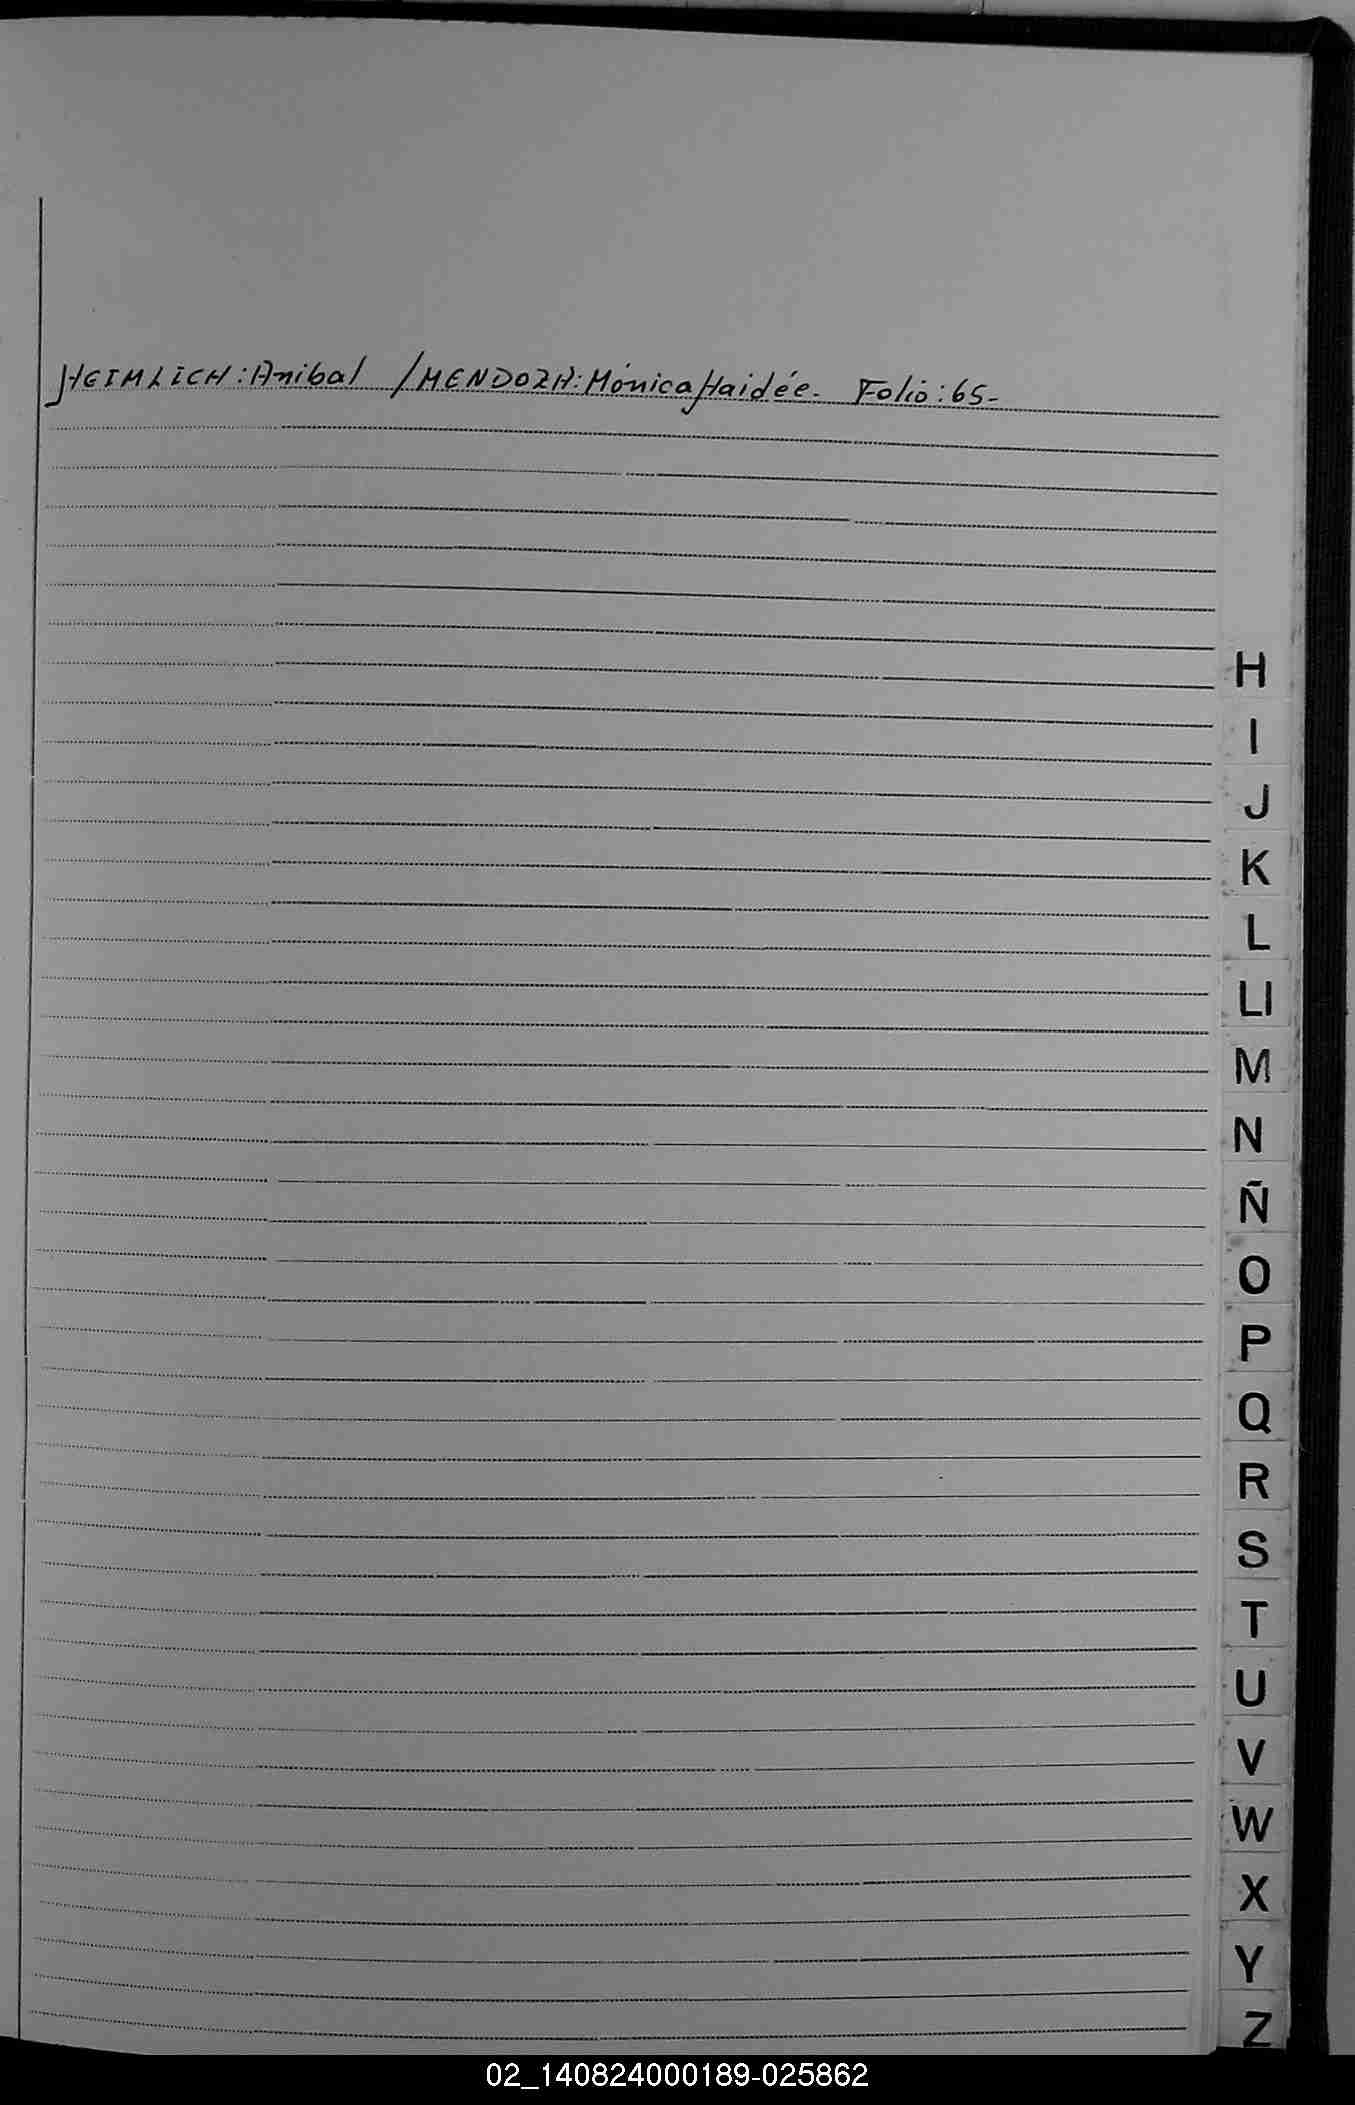 HEIMLICH: Anibal / MENDOZA: Mónica Haidée. Folio: 65-
H
I
J
K
L
Ll
M
N
Ñ
O
P
Q
R
S
T
U
V
W
X
Y
Z
02_140824000189-025862